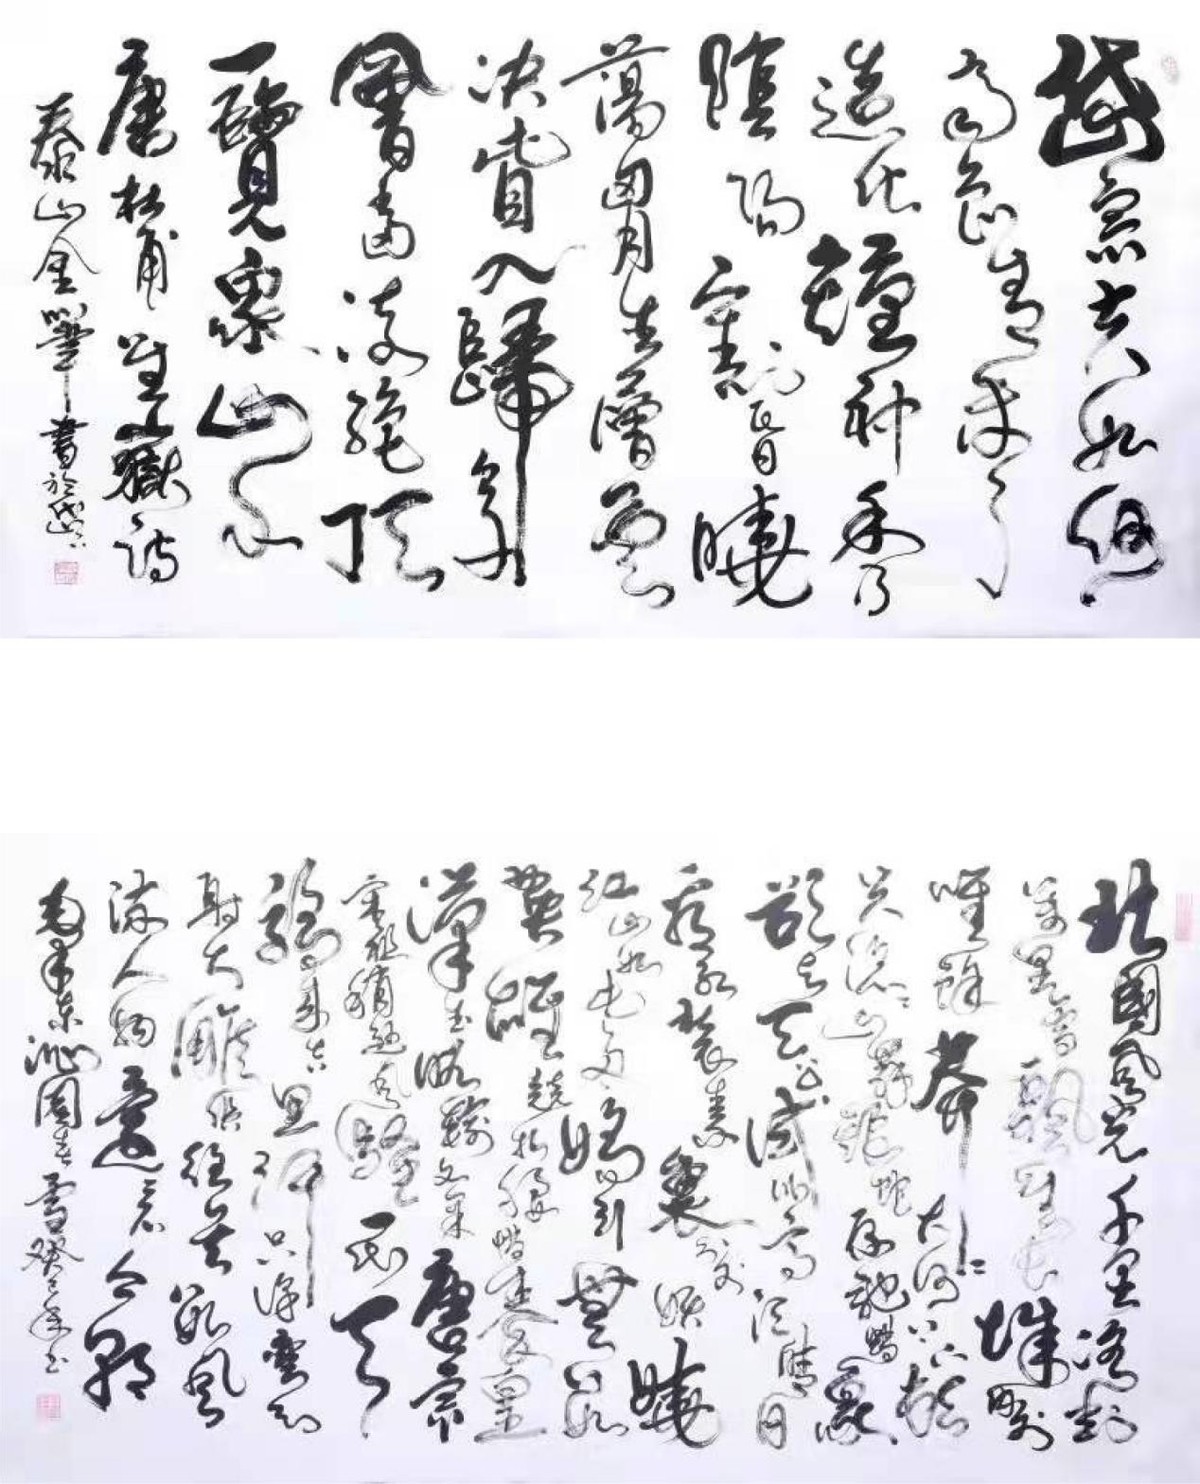 岱宗夫如何
齊魯青未了
造化鍾神秀
陰陽割昏曉
蕩胸生層雲
決眥入歸鳥
會當凌絕頂
一覽眾山小
唐杜甫望嶽詩
泰山金筆書於岱下
北國風光千里冰封
萬里雪飄望長城內外
唯餘莽莽大河上下頓
失滔滔山舞銀蛇原馳蠟象
欲與天公試比高須晴日
看紅裝素裹分外妖嬈
江山如此多嬌引無數
英雄競折腰惜秦皇
漢武略輸文采唐宗
宋祖稍遜風騷一代天
驕成吉思汗只識彎弓
射大雕俱往矣數風
流人物還看今朝
毛澤東沁園春雪癸巳年書